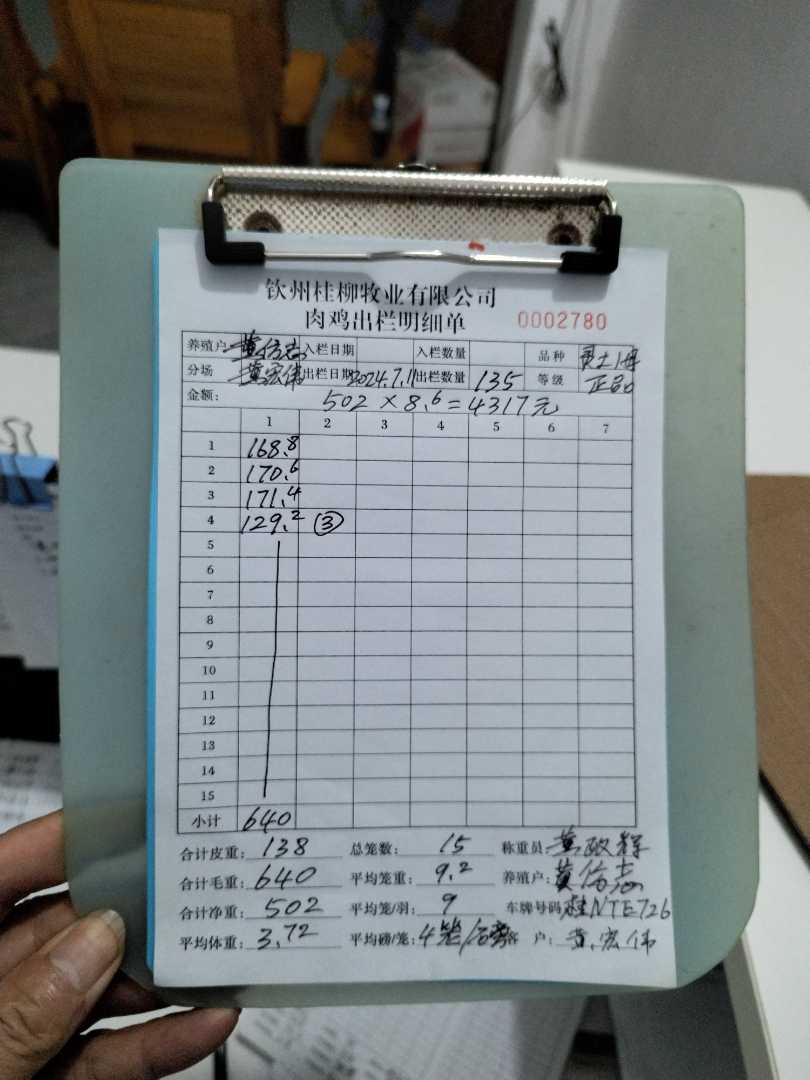 钦州桂柳牧业有限公司
肉鸡出栏明细单 0002780
养殖户 黄仿志 入栏日期 入栏数量 品种
分场 黄宏伟 出栏日期 2024.7.11 出栏数量 135 等级 正品
金额: 502 × 8.6 = 4317元
1 2 3 4 5 6 7
1 168.8
2 170.6
3 171.4
4 129.2 ③
5
6
7
8
9
10
11
12
13
14
15
小计 640
合计皮重: 138 总笼数: 15 称重员: 黄政辉
合计毛重: 640 平均笼重: 9.2 养殖户: 黄仿志
合计净重: 502 平均笼/羽: 9 车牌号码 桂NTE726
平均体重: 3.72 平均磅/笼: 4笼/磅 客户: 黄宏伟